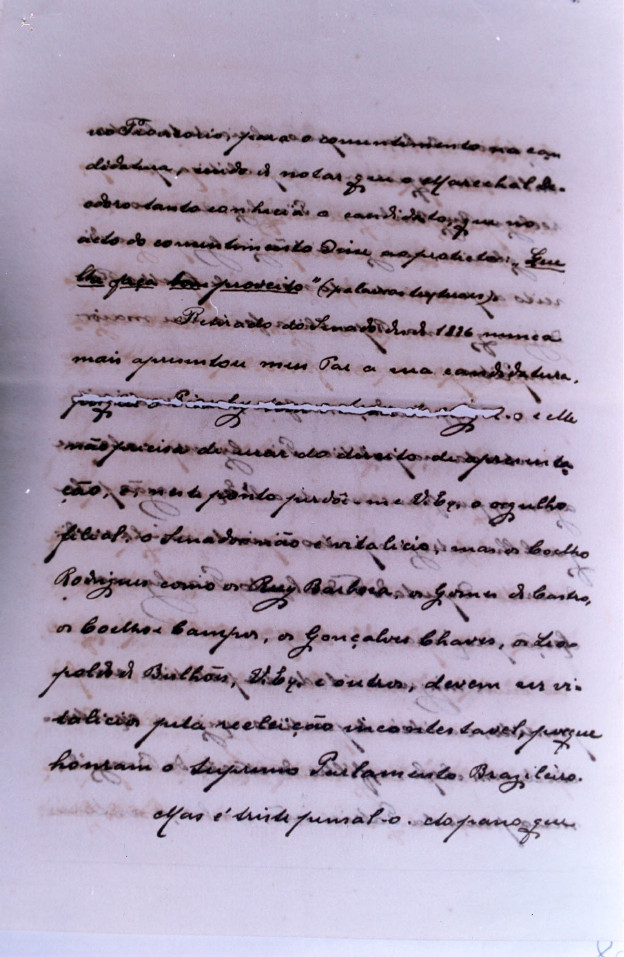 no Provisorio, para o consentimento na can
didatura, sendo de notar que o Marechal De-
odoro tanto conhecia o candidato, que no
acto do consentimento disse ao pretistas: "Seu
faça bom proveito" (palavras textuaes).
Retirado do Senado desde 1896 nunca
mais apresentou meu Pae a sua candidatura,
porque o Piauhy o e elle
não precisa de usar do direito de apresenta-
ção, e, neste ponto perdôe-me V. Exª o orgulho
filial, o Senado não é vitalicio, mas os Coelho
Rodrigues como os Ruy Barbosa, os Gomes de Castro,
os Coelho e Campos, os Gonçalves Chaves, os Leo
poldo de Bulhões, V. Exª e outros, devem ser vi-
talicios pela reeleição incontestavel, porque
honram o supremo Parlamento Brazileiro.
Mas é triste pensal-o. Ao passo que